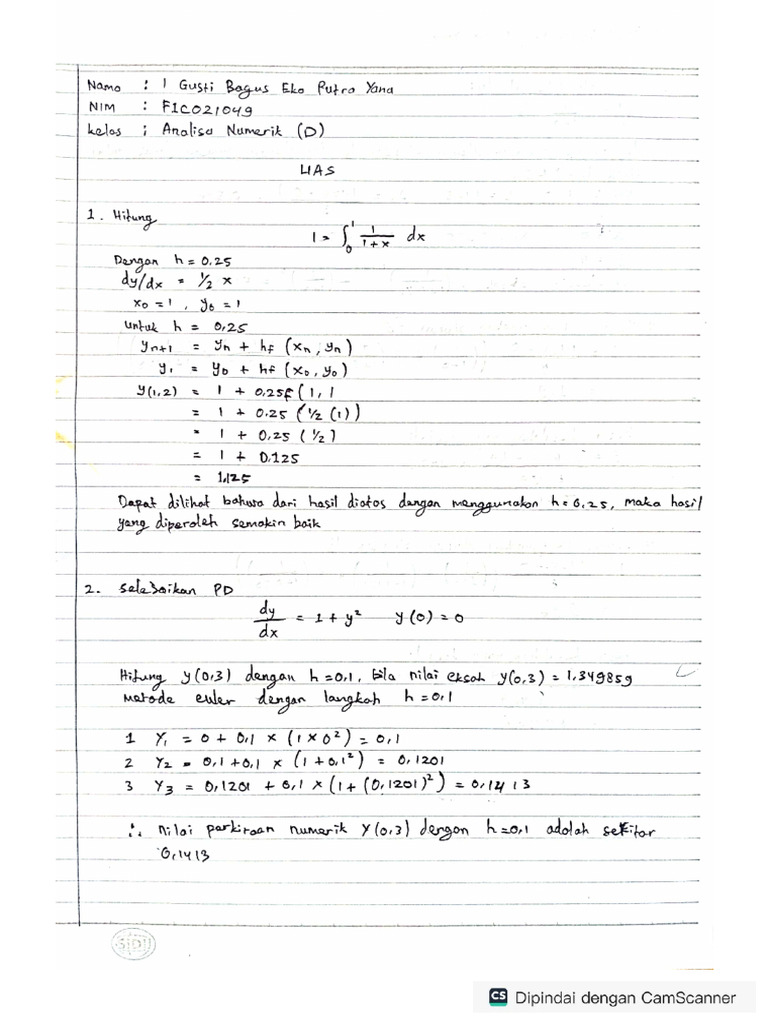 Nama : I Gusti Bagus Eko Putra Yana
NIM : F1C021049
kelas : Analisa Numerik (D)
UAS
1. Hitung
I = ∫₀¹ 1/(1+x) dx
Dengan h = 0,25
dy/dx = 1/2 x
x₀ = 1 , y₀ = 1
untuk h = 0,25
yₙ₊₁ = yₙ + hf (xₙ , yₙ)
y₁ = y₀ + hf (x₀, y₀)
y(1,2) = 1 + 0.25f (1, 1
= 1 + 0.25 (1/2 (1))
= 1 + 0,25 (1/2)
= 1 + 0.125
= 1,125
Dapat dilihat bahwa dari hasil diatas dengan menggunakan h = 0,25, maka hasil
yang diperoleh semakin baik
2. Selesaikan PD
dy/dx = 1 + y² y(0) = 0
Hitung y(0,3) dengan h = 0,1, bila nilai eksak y(0,3) = 1,349859
Metode euler dengan langkah h = 0,1
1 Y₁ = 0 + 0,1 × (1 × 0²) = 0,1
2 Y₂ = 0,1 + 0,1 × (1 + 0,1²) = 0,1201
3 Y₃ = 0,1201 + 0,1 × (1 + (0,1201)²) = 0,1413
∴ Nilai perkiraan numerik Y(0,3) dengan h = 0,1 adalah sekitar
0,1413
SIDU
CS Dipindai dengan CamScanner